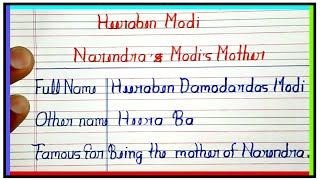 Heeraben Modi
Narendra's Modi's Mother
Full Name Heeraben Damodardas Modi
Other name Heera Ba
Famous For Being the mother of Narendra.